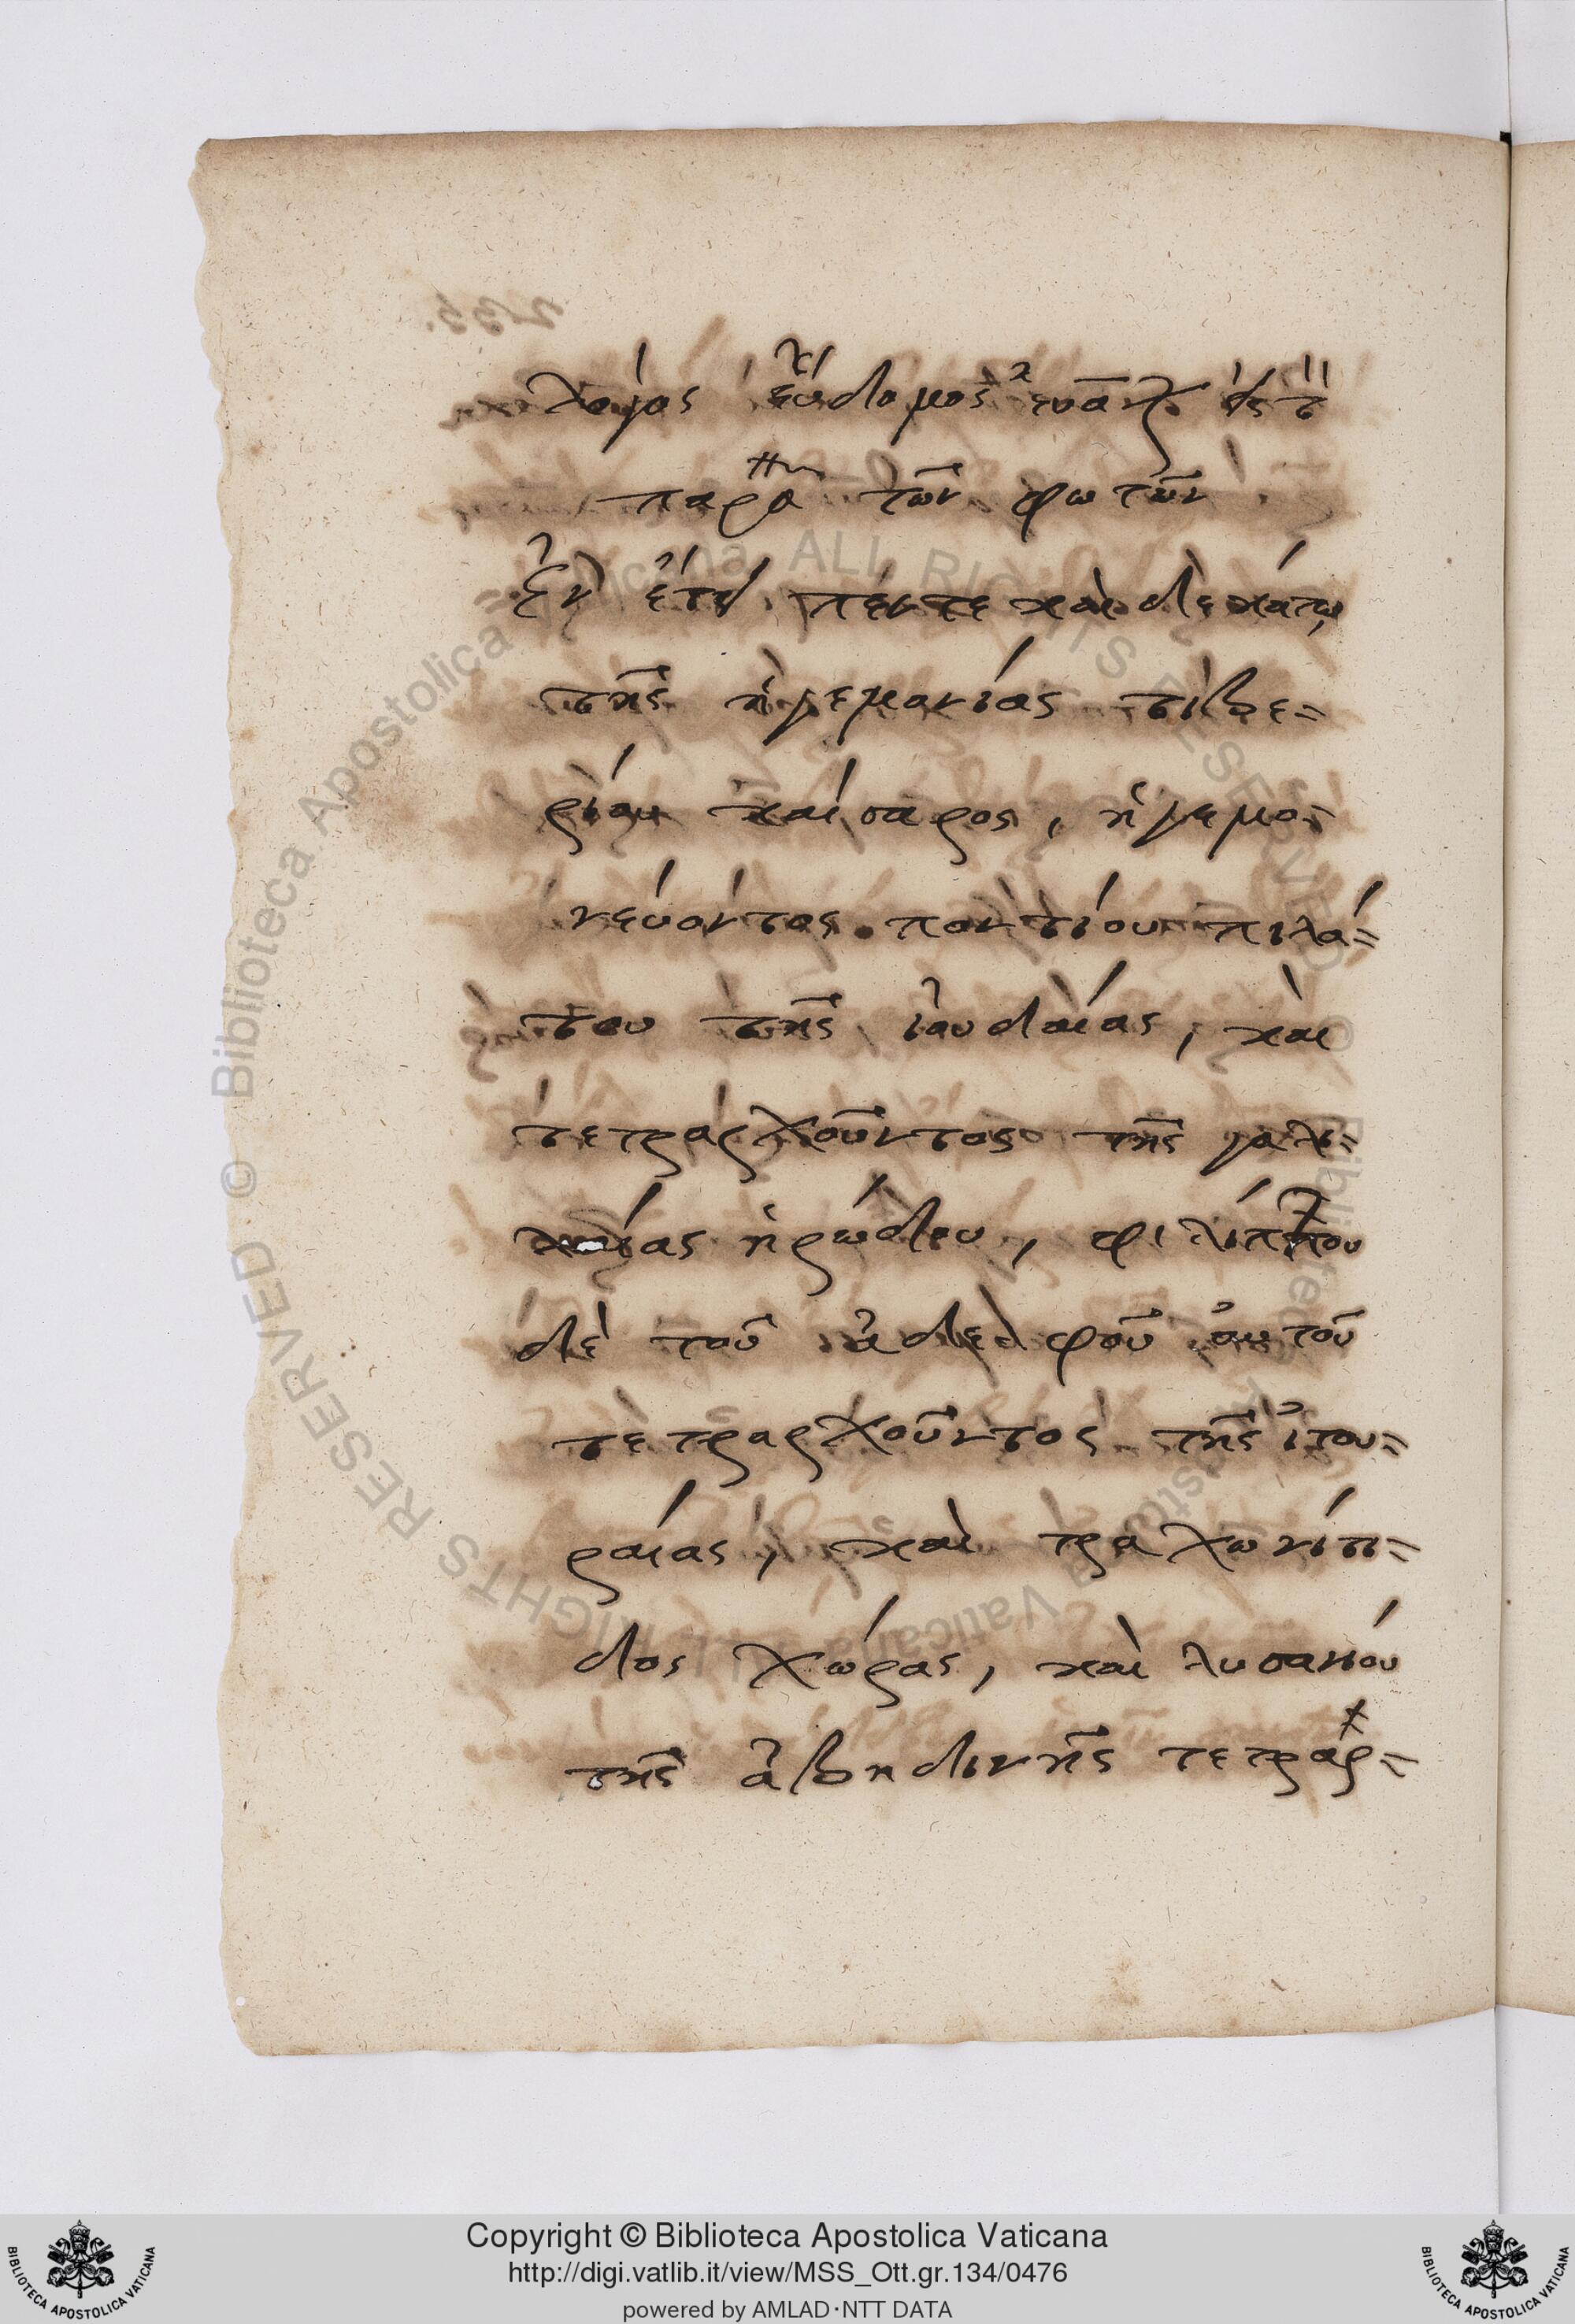 λόγος εὔδομος εὐαγ εἰς τ
παρα τῶν φωτῶν
Ἐν ἔτει πέντε καὶ δεκάτῳ
τῆς ἡγεμονίας τιβε=
ρίου καίσαρος, ἡγεμο=
νεύοντος ποντίου πιλά=
του τῆς ἰουδαίας, καὶ
τετραρχοῦντος τῆς γαλι=
λαίας ἡρώδου, φιλίππου
δὲ τοῦ ἀδελφοῦ αὐτοῦ
τετραρχοῦντος τῆς ἰτου=
ραίας, καὶ τραχωνίτι=
δος χώρας, καὶ λυσανίου
τῆς ἀβηδινῆς τετραρ=
© Biblioteca Apostolica Vaticana ALL RIGHTS RESERVED
Copyright © Biblioteca Apostolica Vaticana
http://digi.vatlib.it/view/MSS_Ott.gr.134/0476
powered by AMLAD·NTT DATA
BIBLIOTECA APOSTOLICA VATICANA
BIBLIOTECA APOSTOLICA VATICANA